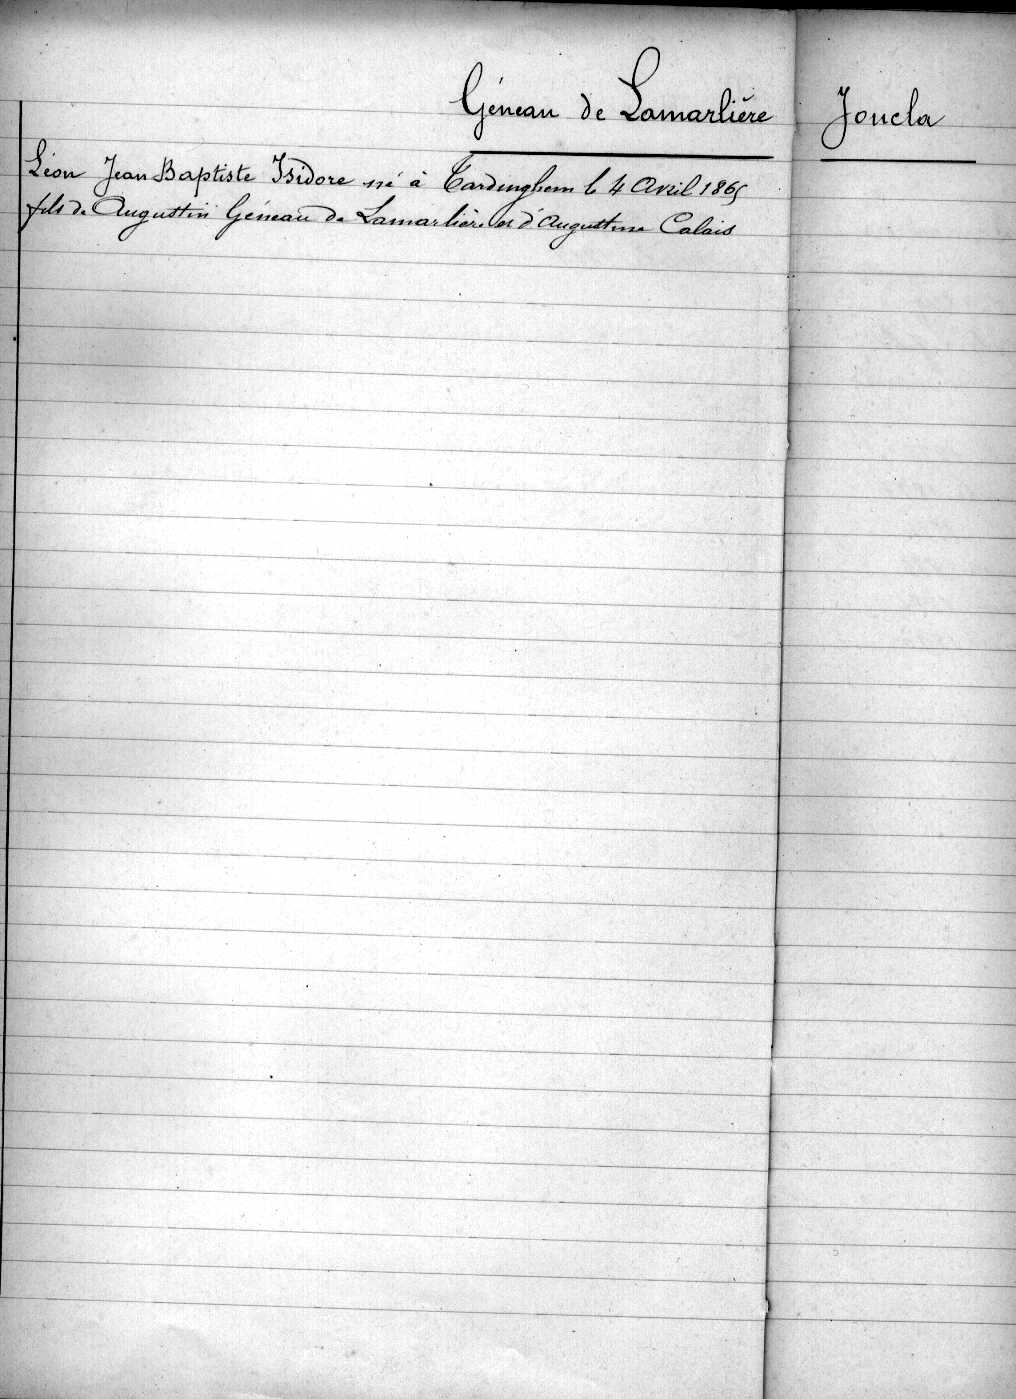 Géneau de Lamarlière
Joucla
Léon Jean Baptiste Isidore né à Tardinghem le 4 Avril 1865
fils de Augustin Géneau de Lamarlière et d'Augustine Calais